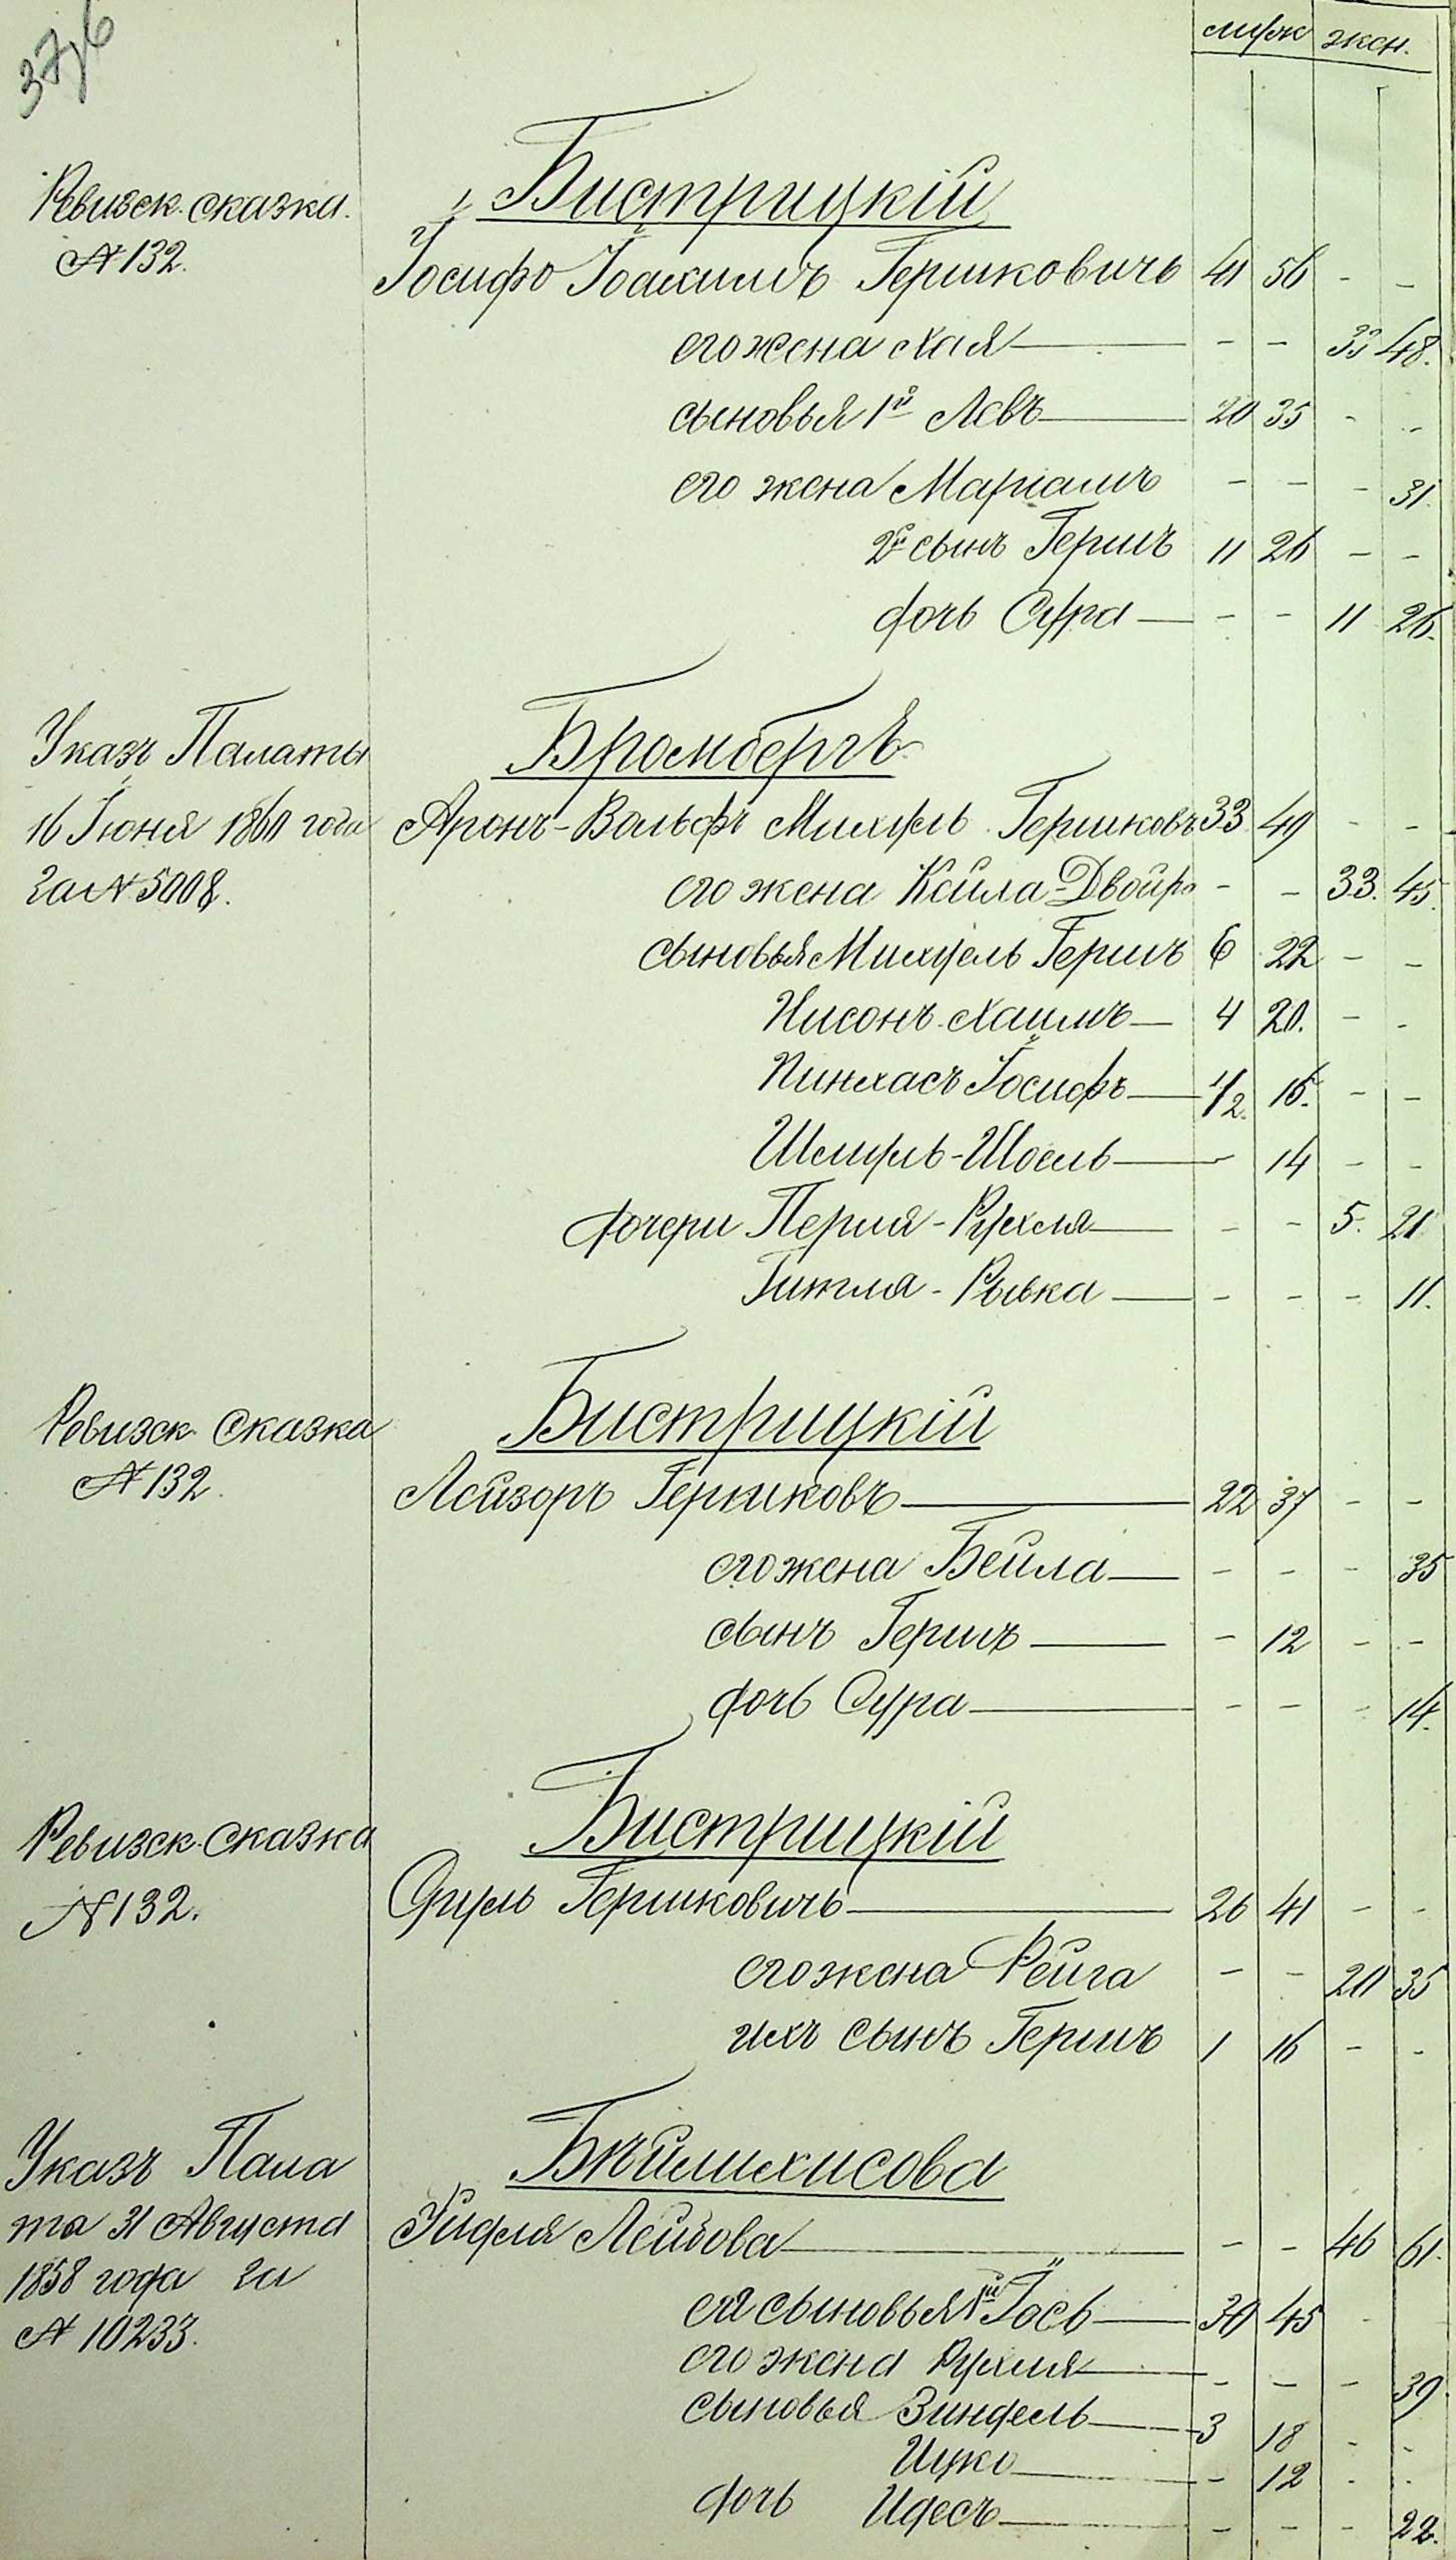 376
муж жен.
Ревизск. сказка.
№ 132.
Бистрицкій
Іосифъ Іоахимъ Гершковичъ 41 56 - -
его жена Хая - - 33 48.
сыновья 1й Левъ 20 35 - -
его жена Маріамъ - - - 31.
2й сынъ Гершъ 11 26 - -
дочь Сура - - 11 26.
Указъ Палаты
16 Іюня 1860 года
за № 5008.
Бромбергъ
Аронъ-Вольфъ Михель Гершковъ 33 49 - -
его жена Кейла-Двойра - - 33. 45.
сыновья Михель Гершъ 6 22 - -
Нисонъ Хаимъ 4 20. - -
Пинхасъ Іосифъ 1/2. 16. - -
Шмуль-Шоель - 14 - -
дочери Перля-Рухля - - 5. 21
Гитля-Рывка - - - 11.
Ревизск. Сказка
№ 132.
Бистрицкій
Лейзоръ Гершковъ 22 37 - -
его жена Бейла - - - 35
сынъ Гершъ - 12 - -
дочь Сура - - - 14.
Ревизск. Сказка
№ 132.
Бистрицкій
Сруль Гершковичъ 26 41 - -
его жена Рейза - - 20 35
ихъ сынъ Гершъ 1 16 - -
Указъ Пала
та 31 Августа
1858 года за
№ 10233.
Лейбова - - 46 61.
ея сыновья 1й Іось 30 45 -
его жена Рухля - - - 39.
сыновья Зиндель 3 18 - -
Ицко - 12 - -
дочь Идесъ - - - 22.